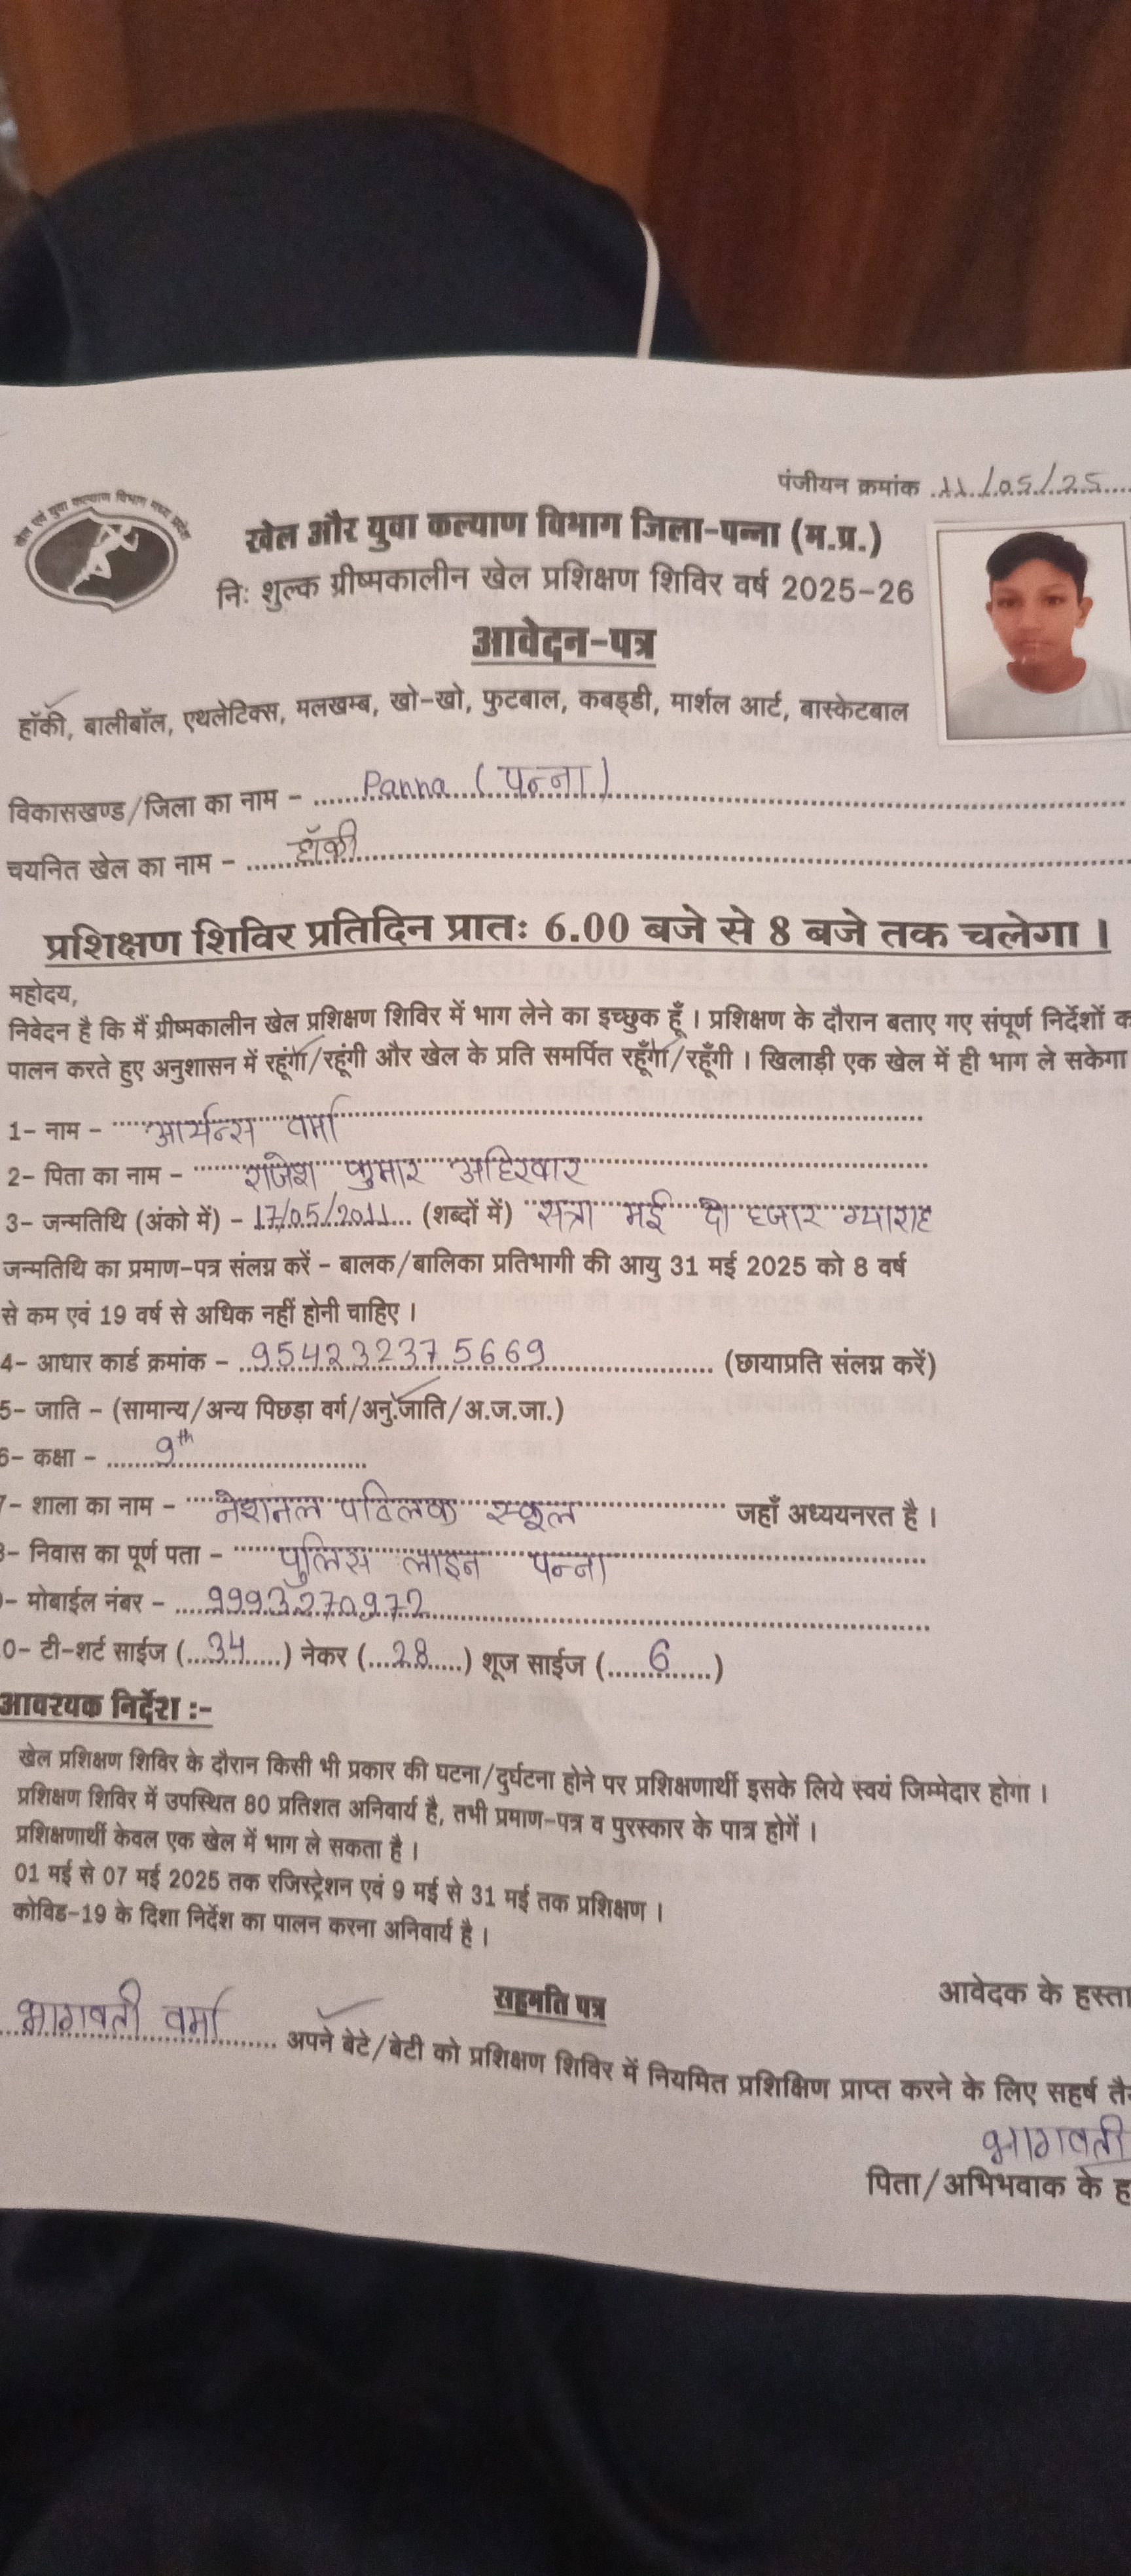 पंजीयन क्रमांक 11/05/25
खेल एवं युवा कल्याण विभाग मध्य प्रदेश
खेल और युवा कल्याण विभाग जिला-पन्ना (म.प्र.)
निः शुल्क ग्रीष्मकालीन खेल प्रशिक्षण शिविर वर्ष 2025-26
आवेदन-पत्र
हॉकी, बालीबॉल, एथलेटिक्स, मलखम्ब, खो-खो, फुटबाल, कबड्डी, मार्शल आर्ट, बास्केटबाल
विकासखण्ड/जिला का नाम - Panna (पन्ना)
चयनित खेल का नाम - हॉकी
प्रशिक्षण शिविर प्रतिदिन प्रातः 6.00 बजे से 8 बजे तक चलेगा।
महोदय,
निवेदन है कि मैं ग्रीष्मकालीन खेल प्रशिक्षण शिविर में भाग लेने का इच्छुक हूँ। प्रशिक्षण के दौरान बताए गए संपूर्ण निर्देशों क
पालन करते हुए अनुशासन में रहूंगा/रहूंगी और खेल के प्रति समर्पित रहूँगा/रहूँगी। खिलाड़ी एक खेल में ही भाग ले सकेगा
1- नाम - आर्यन्स वर्मा
2- पिता का नाम - राजेश कुमार अहिरवार
3- जन्मतिथि (अंको में) - 17/05/2011 (शब्दों में) सत्रा मई दो हजार ग्याराह
जन्मतिथि का प्रमाण-पत्र संलग्न करें - बालक/बालिका प्रतिभागी की आयु 31 मई 2025 को 8 वर्ष
से कम एवं 19 वर्ष से अधिक नहीं होनी चाहिए।
4- आधार कार्ड क्रमांक - 954232375669 (छायाप्रति संलग्न करें)
5- जाति - (सामान्य/अन्य पिछड़ा वर्ग/अनु.जाति/अ.ज.जा.)
6- कक्षा - 9th
7- शाला का नाम - नेशनल पब्लिक स्कूल जहाँ अध्ययनरत है।
8- निवास का पूर्ण पता - पुलिस लाइन पन्ना
- मोबाईल नंबर - 9993270972
0- टी-शर्ट साईज (34) नेकर (28) शूज साईज (6)
आवश्यक निर्देश :-
खेल प्रशिक्षण शिविर के दौरान किसी भी प्रकार की घटना/दुर्घटना होने पर प्रशिक्षणार्थी इसके लिये स्वयं जिम्मेदार होगा।
प्रशिक्षण शिविर में उपस्थित 80 प्रतिशत अनिवार्य है, तभी प्रमाण-पत्र व पुरस्कार के पात्र होगें।
प्रशिक्षणार्थी केवल एक खेल में भाग ले सकता है।
01 मई से 07 मई 2025 तक रजिस्ट्रेशन एवं 9 मई से 31 मई तक प्रशिक्षण।
कोविड-19 के दिशा निर्देश का पालन करना अनिवार्य है।
आवेदक के हस्ता
सहमति पत्र
भागवती वर्मा अपने बेटे/बेटी को प्रशिक्षण शिविर में नियमित प्रशिक्षिण प्राप्त करने के लिए सहर्ष तै
भागवती
पिता/अभिभवाक के ह